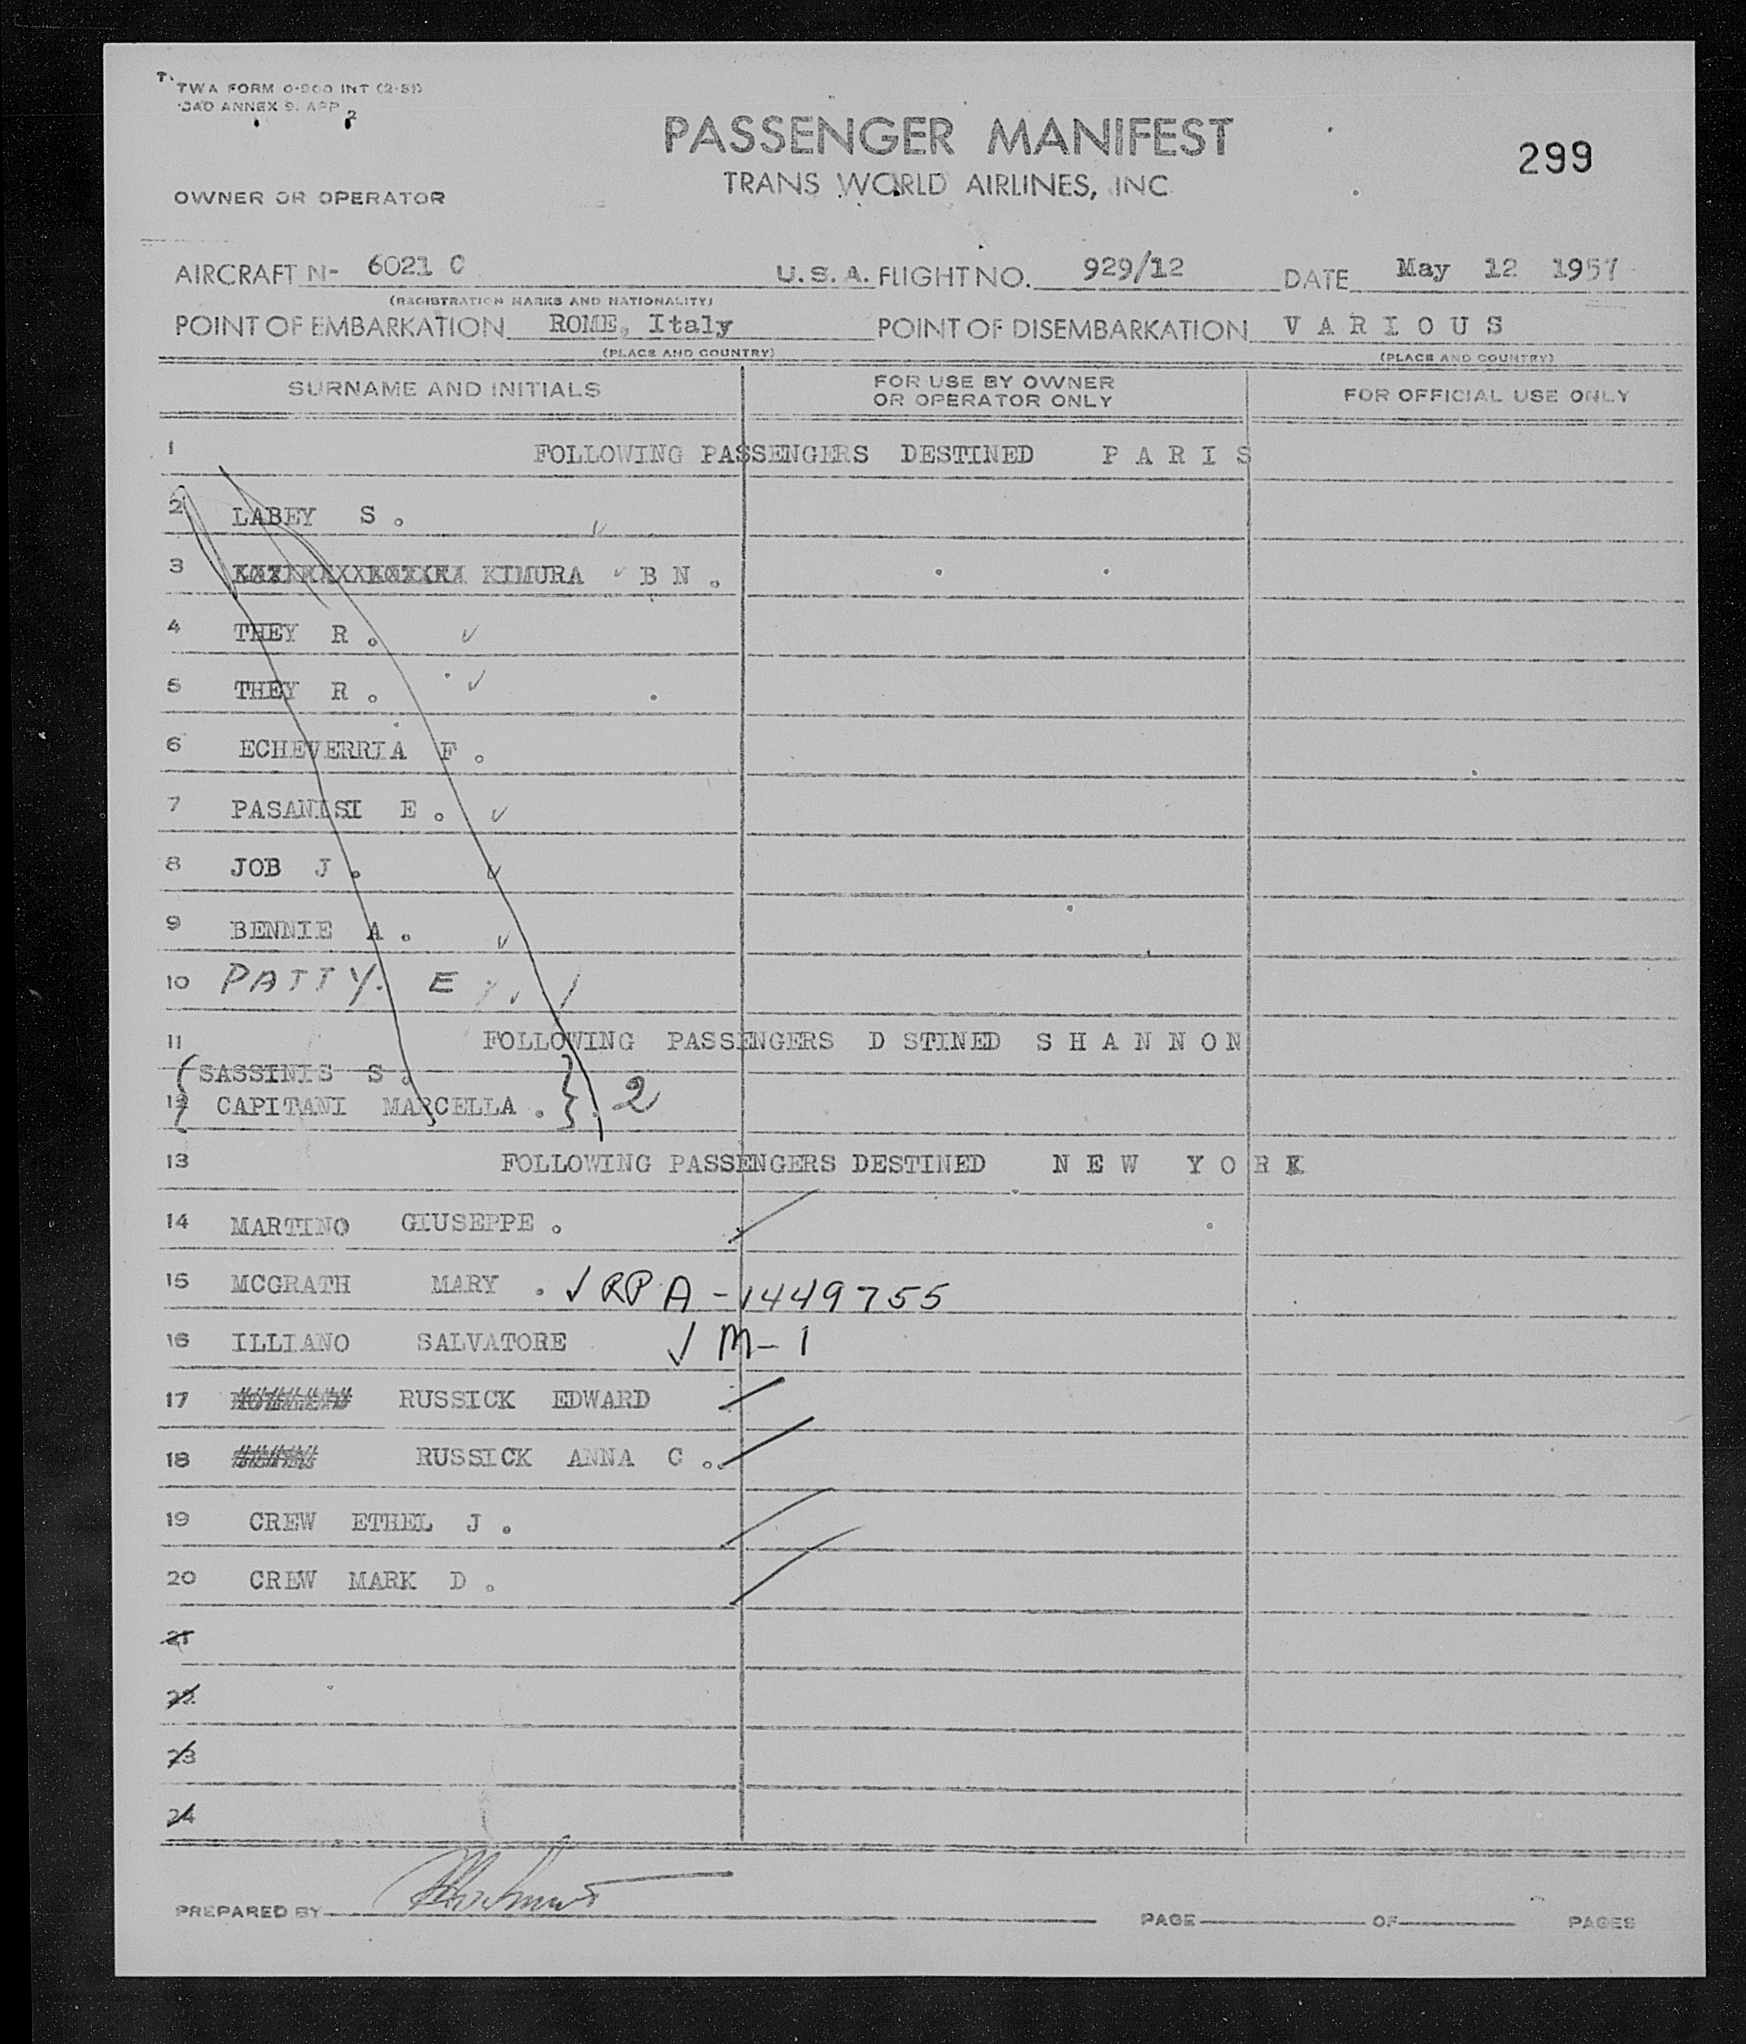 TWA FORM 0-900 INT (2-51)
ICAO ANNEX 9. APP 2
PASSENGER MANIFEST
299
TRANS WORLD AIRLINES, INC
OWNER OR OPERATOR
AIRCRAFT N- 6021 C U.S.A. FLIGHT NO. 929/12 DATE May 12 1957
(REGISTRATION MARKS AND NATIONALITY)
POINT OF EMBARKATION ROME, Italy POINT OF DISEMBARKATION VARIOUS
(PLACE AND COUNTRY) (PLACE AND COUNTRY)
SURNAME AND INITIALS FOR USE BY OWNER OR OPERATOR ONLY FOR OFFICIAL USE ONLY
1 FOLLOWING PASSENGERS DESTINED PARIS
2 LABEY S. ✓
3 KIMURA ✓ B N.
4 THEY R. ✓
5 THEY R. ✓
6 ECHEVERRIA F.
7 PASANISI E. ✓
8 JOB J. ✓
9 BENNIE A. ✓
10 PATTY. E
11 FOLLOWING PASSENGERS D STINED SHANNON
{SASSINIS S.
12 CAPITANI MARCELLA.} 2
13 FOLLOWING PASSENGERS DESTINED NEW YORK
14 MARTINO GIUSEPPE.
15 MCGRATH MARY. ✓ RP A-1449755
16 ILLIANO SALVATORE ✓ M-1
17 RUSSICK EDWARD
18 RUSSICK ANNA C.
19 CREW ETHEL J.
20 CREW MARK D.
21
22
23
24
PREPARED BY PAGE OF PAGES